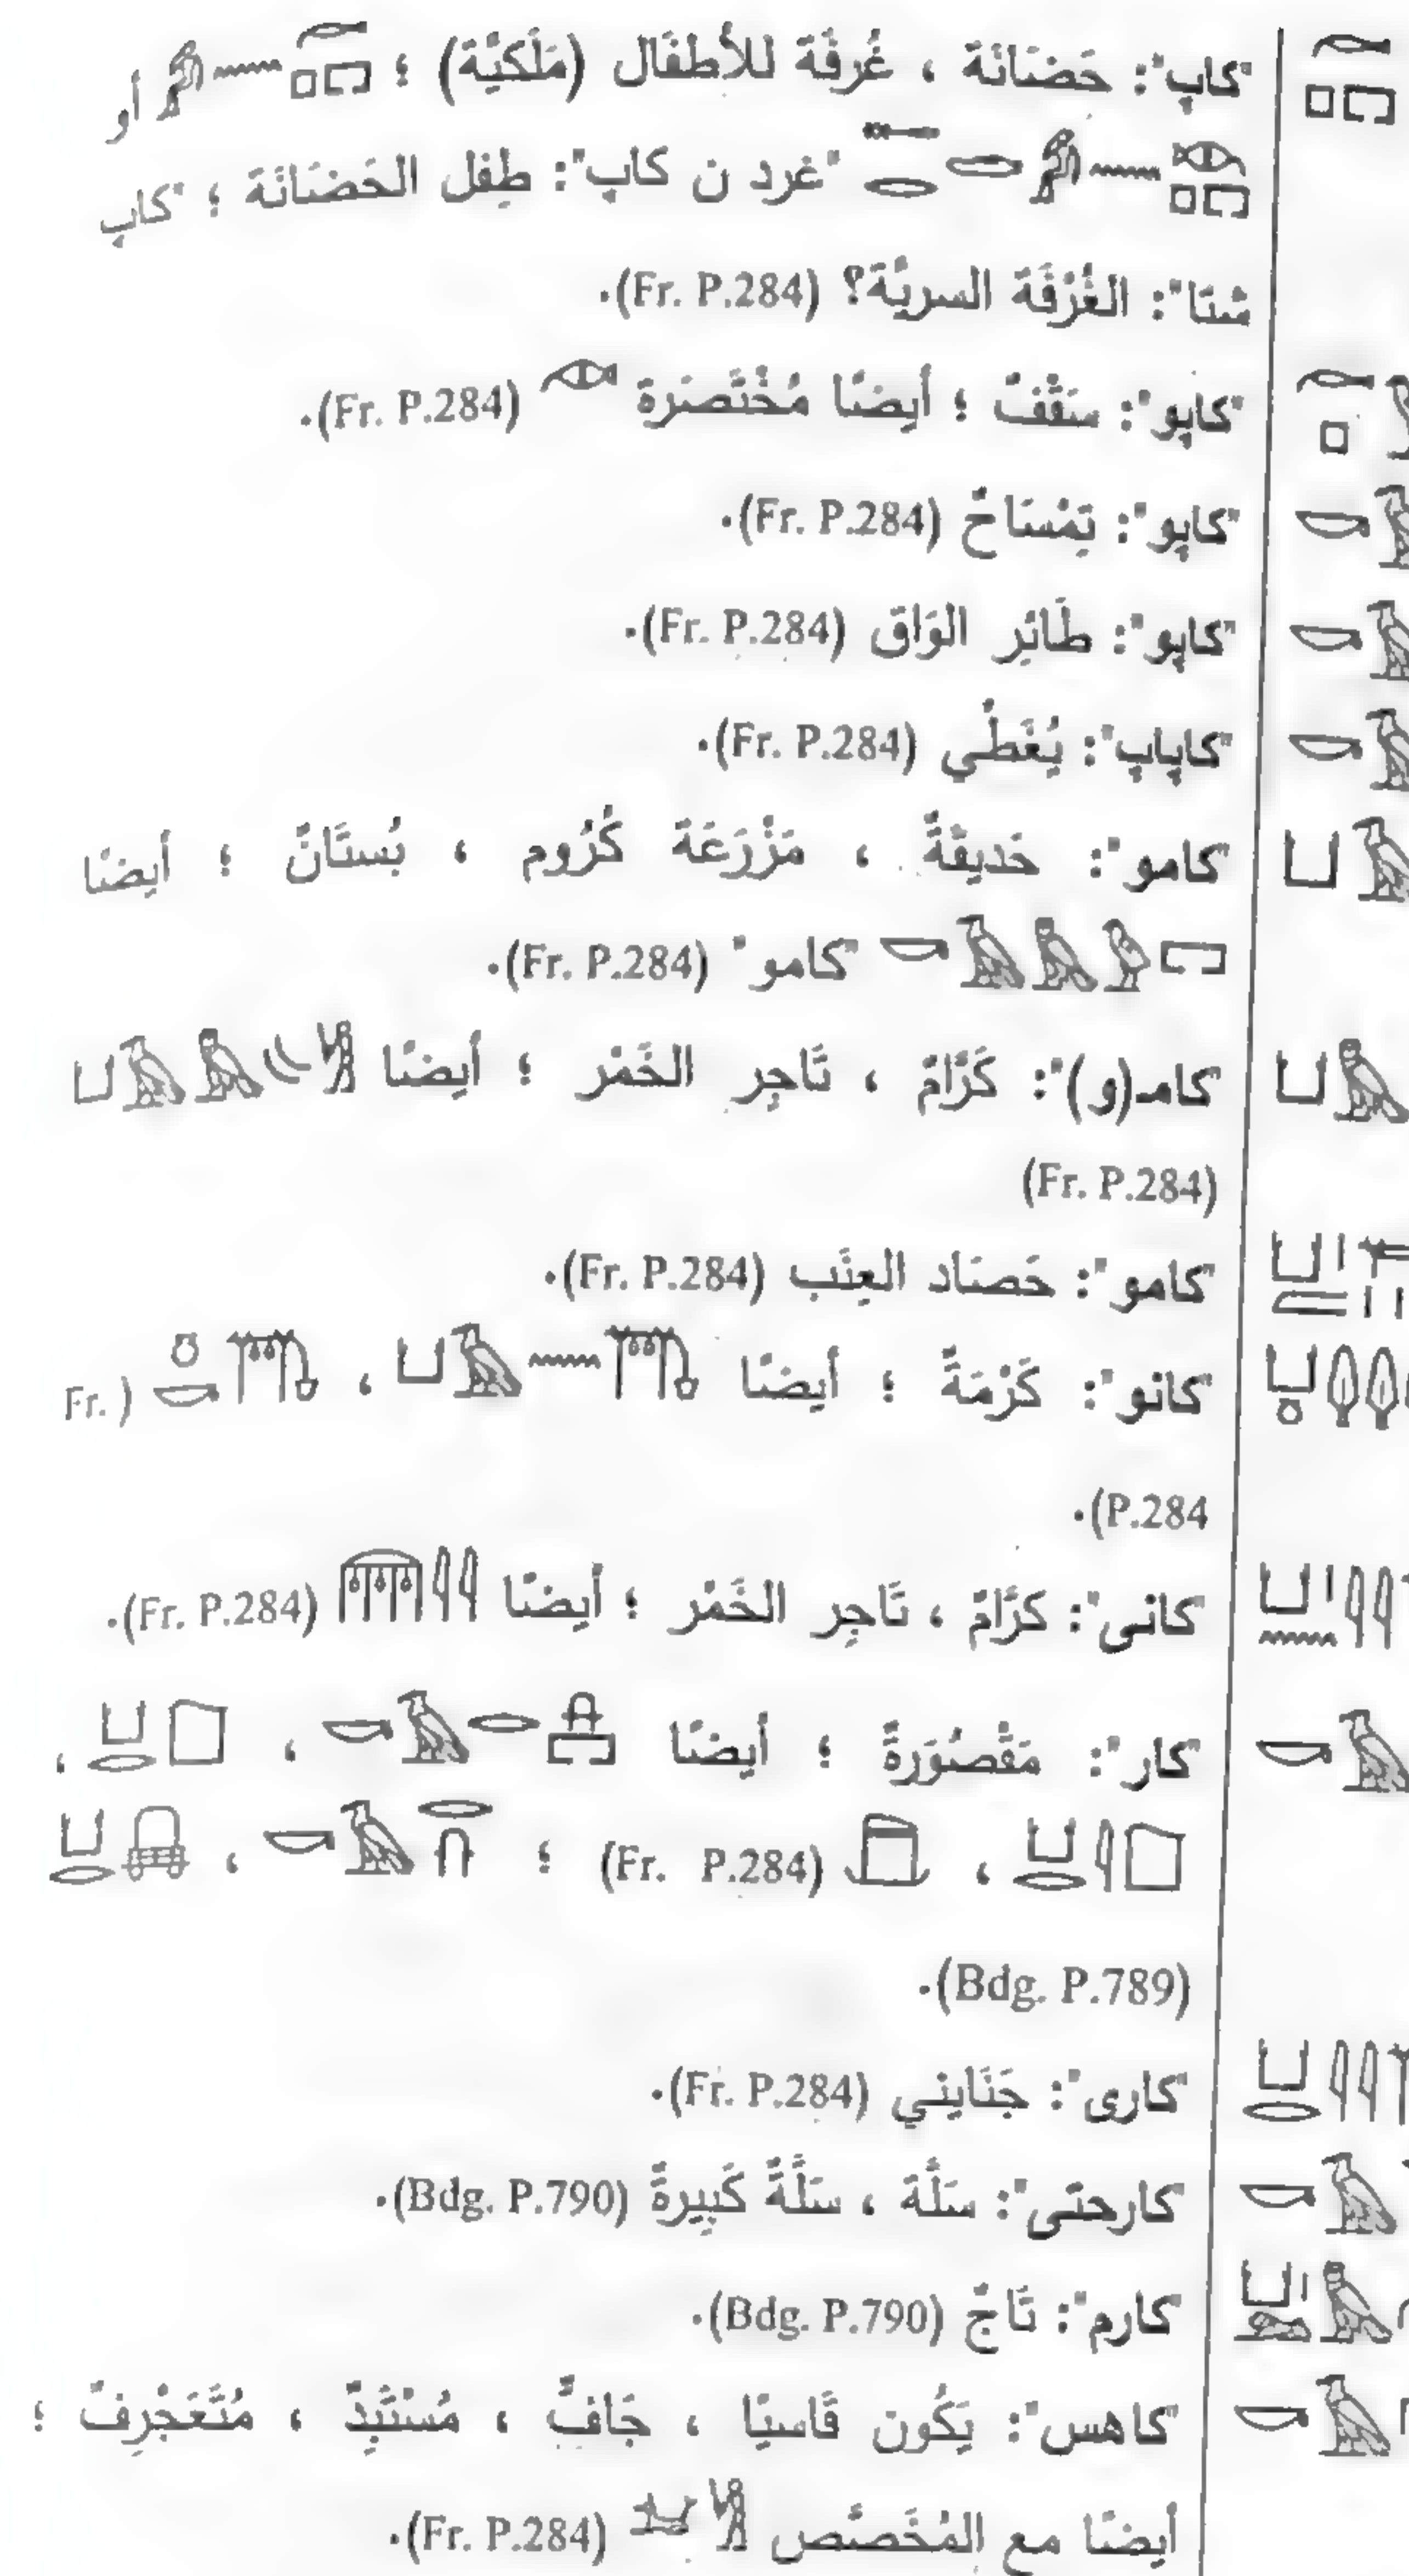 "كاپ": حَضَانَة ، غُرفَة للأطفَال (مَلَكيَّة) ؛ أو
"غرد ن كاپ": طِفل الحَضَانَة ؛ "كاپ
شتا": الغُرْفَة السريَّة؟ (Fr. P.284).
"كاپو": سَقْفٌ ؛ أيضنًا مُخْتَصَرة (Fr. P.284).
"كاپو": تِمْسَاحٌ (Fr. P.284).
"كاپو": طَائِر الوَاق (Fr. P.284).
"كاپاپ": يُغَطِّي (Fr. P.284).
"كامو": حَديقَةٌ ، مَزْرَعَة كُرُوم ، بُستَانٌ ؛ أيضًا
"كامو" (Fr. P.284).
"كامـ(و)": كَرَّامٌ ، تَاجِر الخَمْر ؛ أيضًا
(Fr. P.284)
"كامو": حَصَاد العِنَب (Fr. P.284).
"كانو": كَرْمَةٌ ؛ أيضًا ، (Fr.
P.284).
"كانى": كَرَّامٌ ، تَاجِر الخَمْر ؛ أيضًا (Fr. P.284).
"كار": مَقْصُوَرةٌ ؛ أيضًا ، ،
، (Fr. P.284) ؛ ،
(Bdg. P.789).
"كارى": جَنَايني (Fr. P.284).
"كارحتى": سَلَّة ، سَلَّةٌ كَبِيرةٌ (Bdg. P.790).
"كارم": تَاجٌ (Bdg. P.790).
"كاهس": يَكُون قَاسيًا ، جَافٌ ، مُسْتَبِدٌّ ، مُتَعَجْرِفٌ ؛
أيضًا مع المُخَصَّص (Fr. P.284).